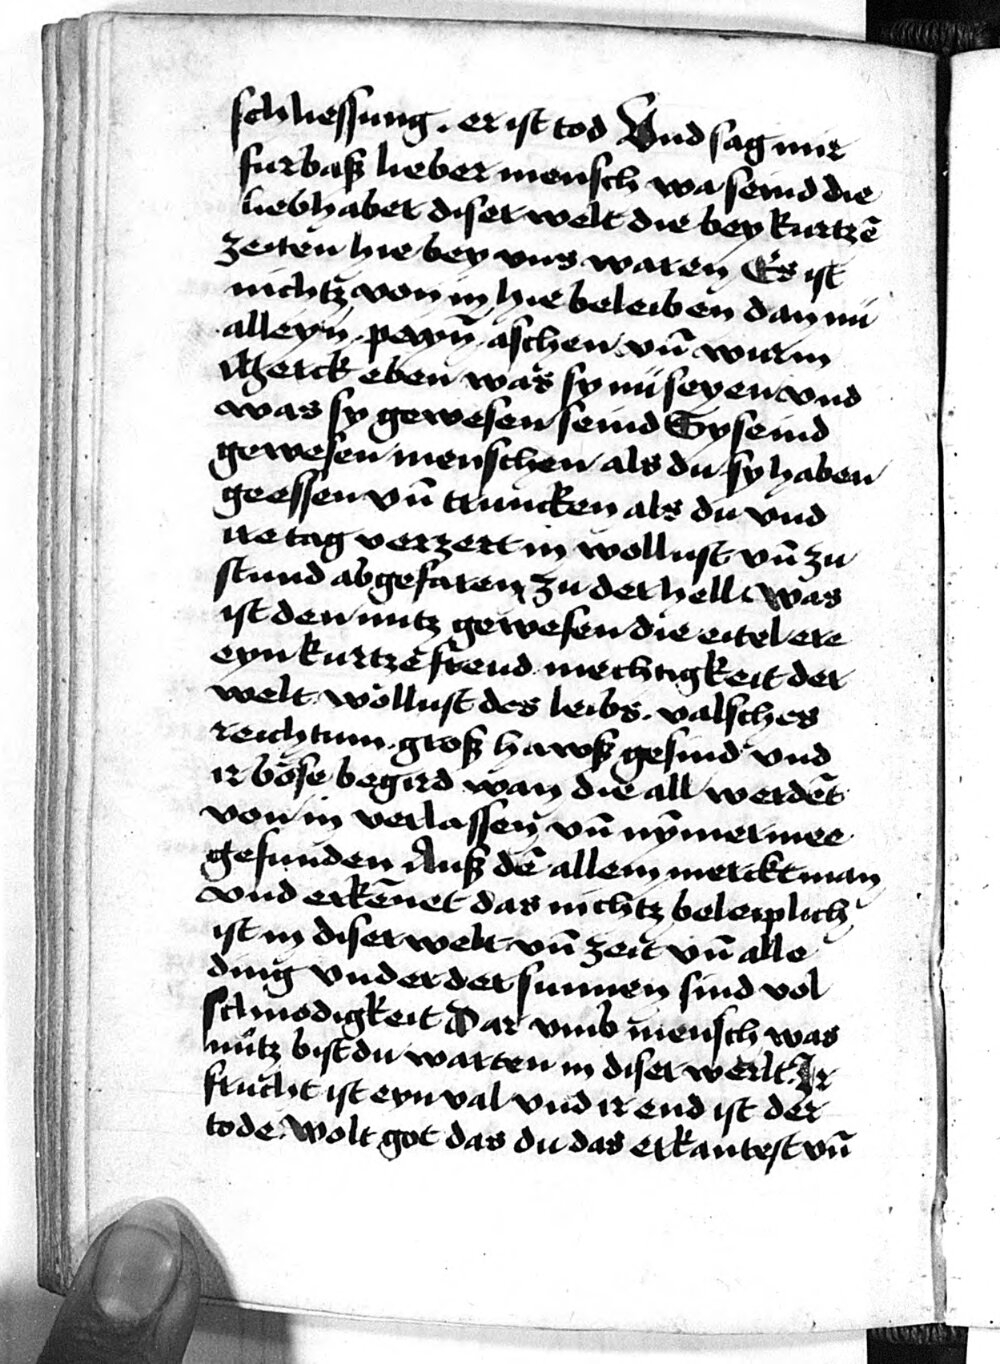 schliessung . er ist tod Vnd sag mir
furbaß lieber mensch wa seind die
liebhaber diser welt die bey kurtzē
zeiten hie bey vns waren Es ist
nichtz von in hie beleiben dan nü
alleyn . peyn̄ aschen vn̄ wurm
Merck eben was sy nü seyen vnd
was sy gewesen seind Sy seind
gewesen menschen als du sy haben
geessen vn̄ truncken als du vnd
ire tag verzert in wollust vn̄ zu
stund abgefaren zu der hell . Was
ist den nutz gewesen die eitel ere
eyn kurtzē freud mechtigkeit der
welt wöllust des leibs . valsches
reichtum . groß hawß gesind vnd
ir böse begird wan die all werdēt
von in verlassen vn̄ nȳmermee
gefunden Auß dē allem merckt man
vnd erkēnet das nichtz beleiplich
ist in diser welt vn̄ zeit vn̄ alle
ding vnder der sunnen sind vol
schnodigkeit Dar vmb mensch was
nutz bist du warten in diser werlt . Ir
frucht ist eyn val vnd ir end ist der
tode . Wolt got das du das erkantest vn̄